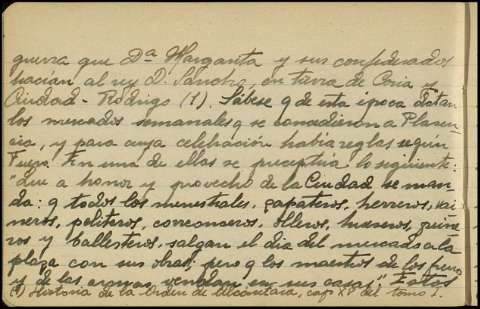 guerra que Dª Margarita y sus confederados
hacían al rey D. Sancho, en tierra de Coria y
Ciudad-Rodrigo (1). Sábese q de esta época datan
los mercados semanales q se concedieron a Plasen-
cia, y para cuya celebración había reglas según
Fuero. En una de ellas se preceptúa lo siguiente:
"Que a honor y provecho de la Ciudad se man-
da: q todos los menestrales, zapateros, herreros,
neros, peliteros, correoneros, olleros,
ros y ballesteros, salgan el día del mercado a la
plaza con sus obras, pero q los maestros de los frenos
y de las armas, vendan en sus casas". Estos
(1) Historia de la Orden de Alcántara, cap. XV del tomo I.